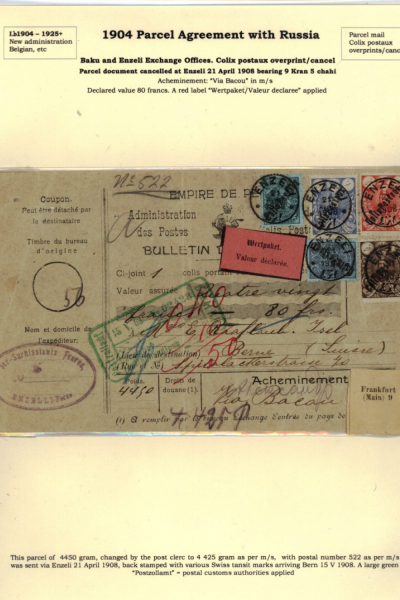 1904 – 1925+
New administration
Belgian, etc
1904 Parcel Agreement with Russia
Parcel mail
Colix postaux
overprints/cance
Baku and Enzeli Exchange Offices. Colix postaux overprint/cancel
Parcel document cancelled at Enzeli 21 April 1908 bearing 9 Kran 5 chahi
Acheminement: "Via Bacou" in m/s
Declared value 80 francs. A red label "Wertpaket/Valeur declaree" applied
No 522
Coupon.
Peut être détaché par
le destinataire
Timbre du bureau
d'origine
EMPIRE DE P
Administration
des Postes
Colis Post
BULLETIN D
ENZELI
ENZELI
ENZELI
ENZELI
Wertpaket.
Valeur déclarée.
Ci-joint 1 colis
Valeur assurée quatre vingt
80 frs.
Nom et domicile de
l'expéditeur
(Lieu de destination) Berne (Suisse)
(Rue et No)
Poids.
4450
Droits de
douane (1).
Acheminement
Via Bacou
Frankfurt
(Main) 9
(1) A remplir par le bureau d'échange d'entrée du pays de
This parcel of 4450 gram, changed by the post clerc to 4 425 gram as per m/s, with postal number 522 as per m/s
was sent via Enzeli 21 April 1908, back stamped with various Swiss tansit marks arriving Bern 15 V 1908. A large green
"Postzollamt" = postal customs authorities applied